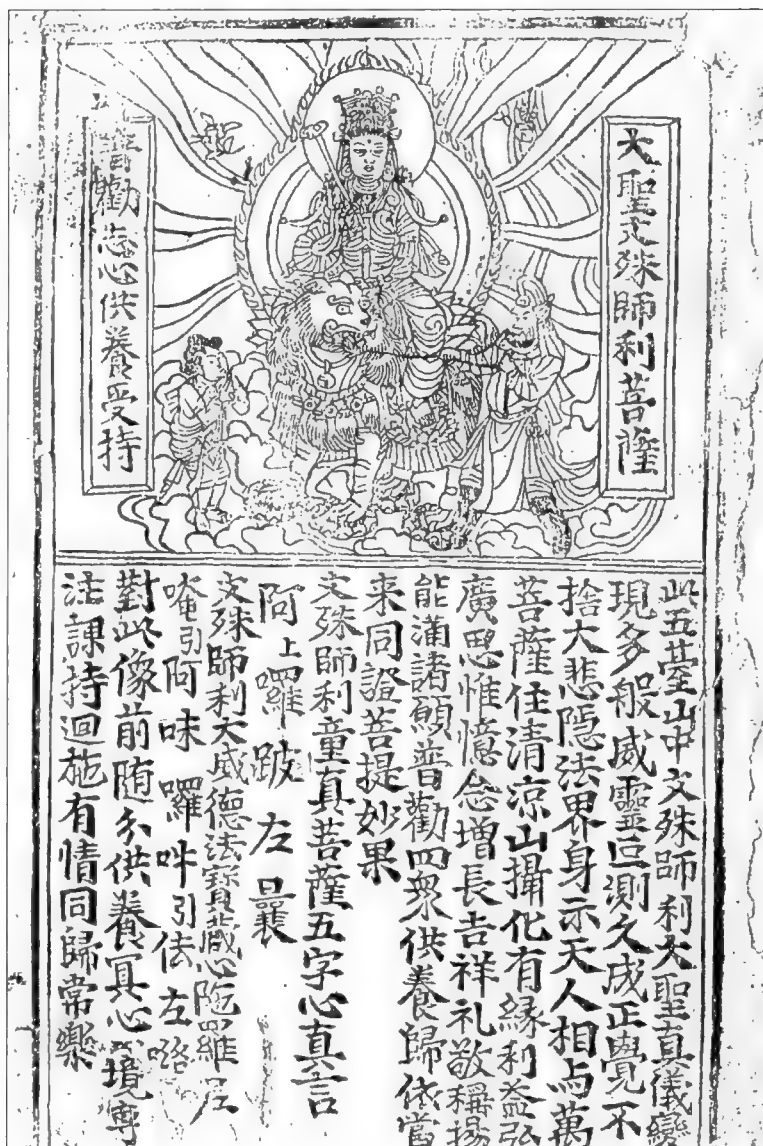 大聖文殊師利菩薩
普勸志心供養受持
此五臺山中文殊師利大聖真儀變
現多般威靈叵測久成正覺不
捨大悲隱法界身示天人相与萬
菩薩住清涼山攝化有緣利益弘
廣思惟憶念增長吉祥礼敬稱揚
能滿諸願普勸四衆供養歸依當
来同證菩提妙果
文殊師利童真菩薩五字心真言
阿上囉跛左曩
文殊師利大威德法寶藏心陁羅尼
唵引阿味囉吽引佉左𠷑
對此像前隨分供養冥心一境專
注課持迴施有情同歸常樂